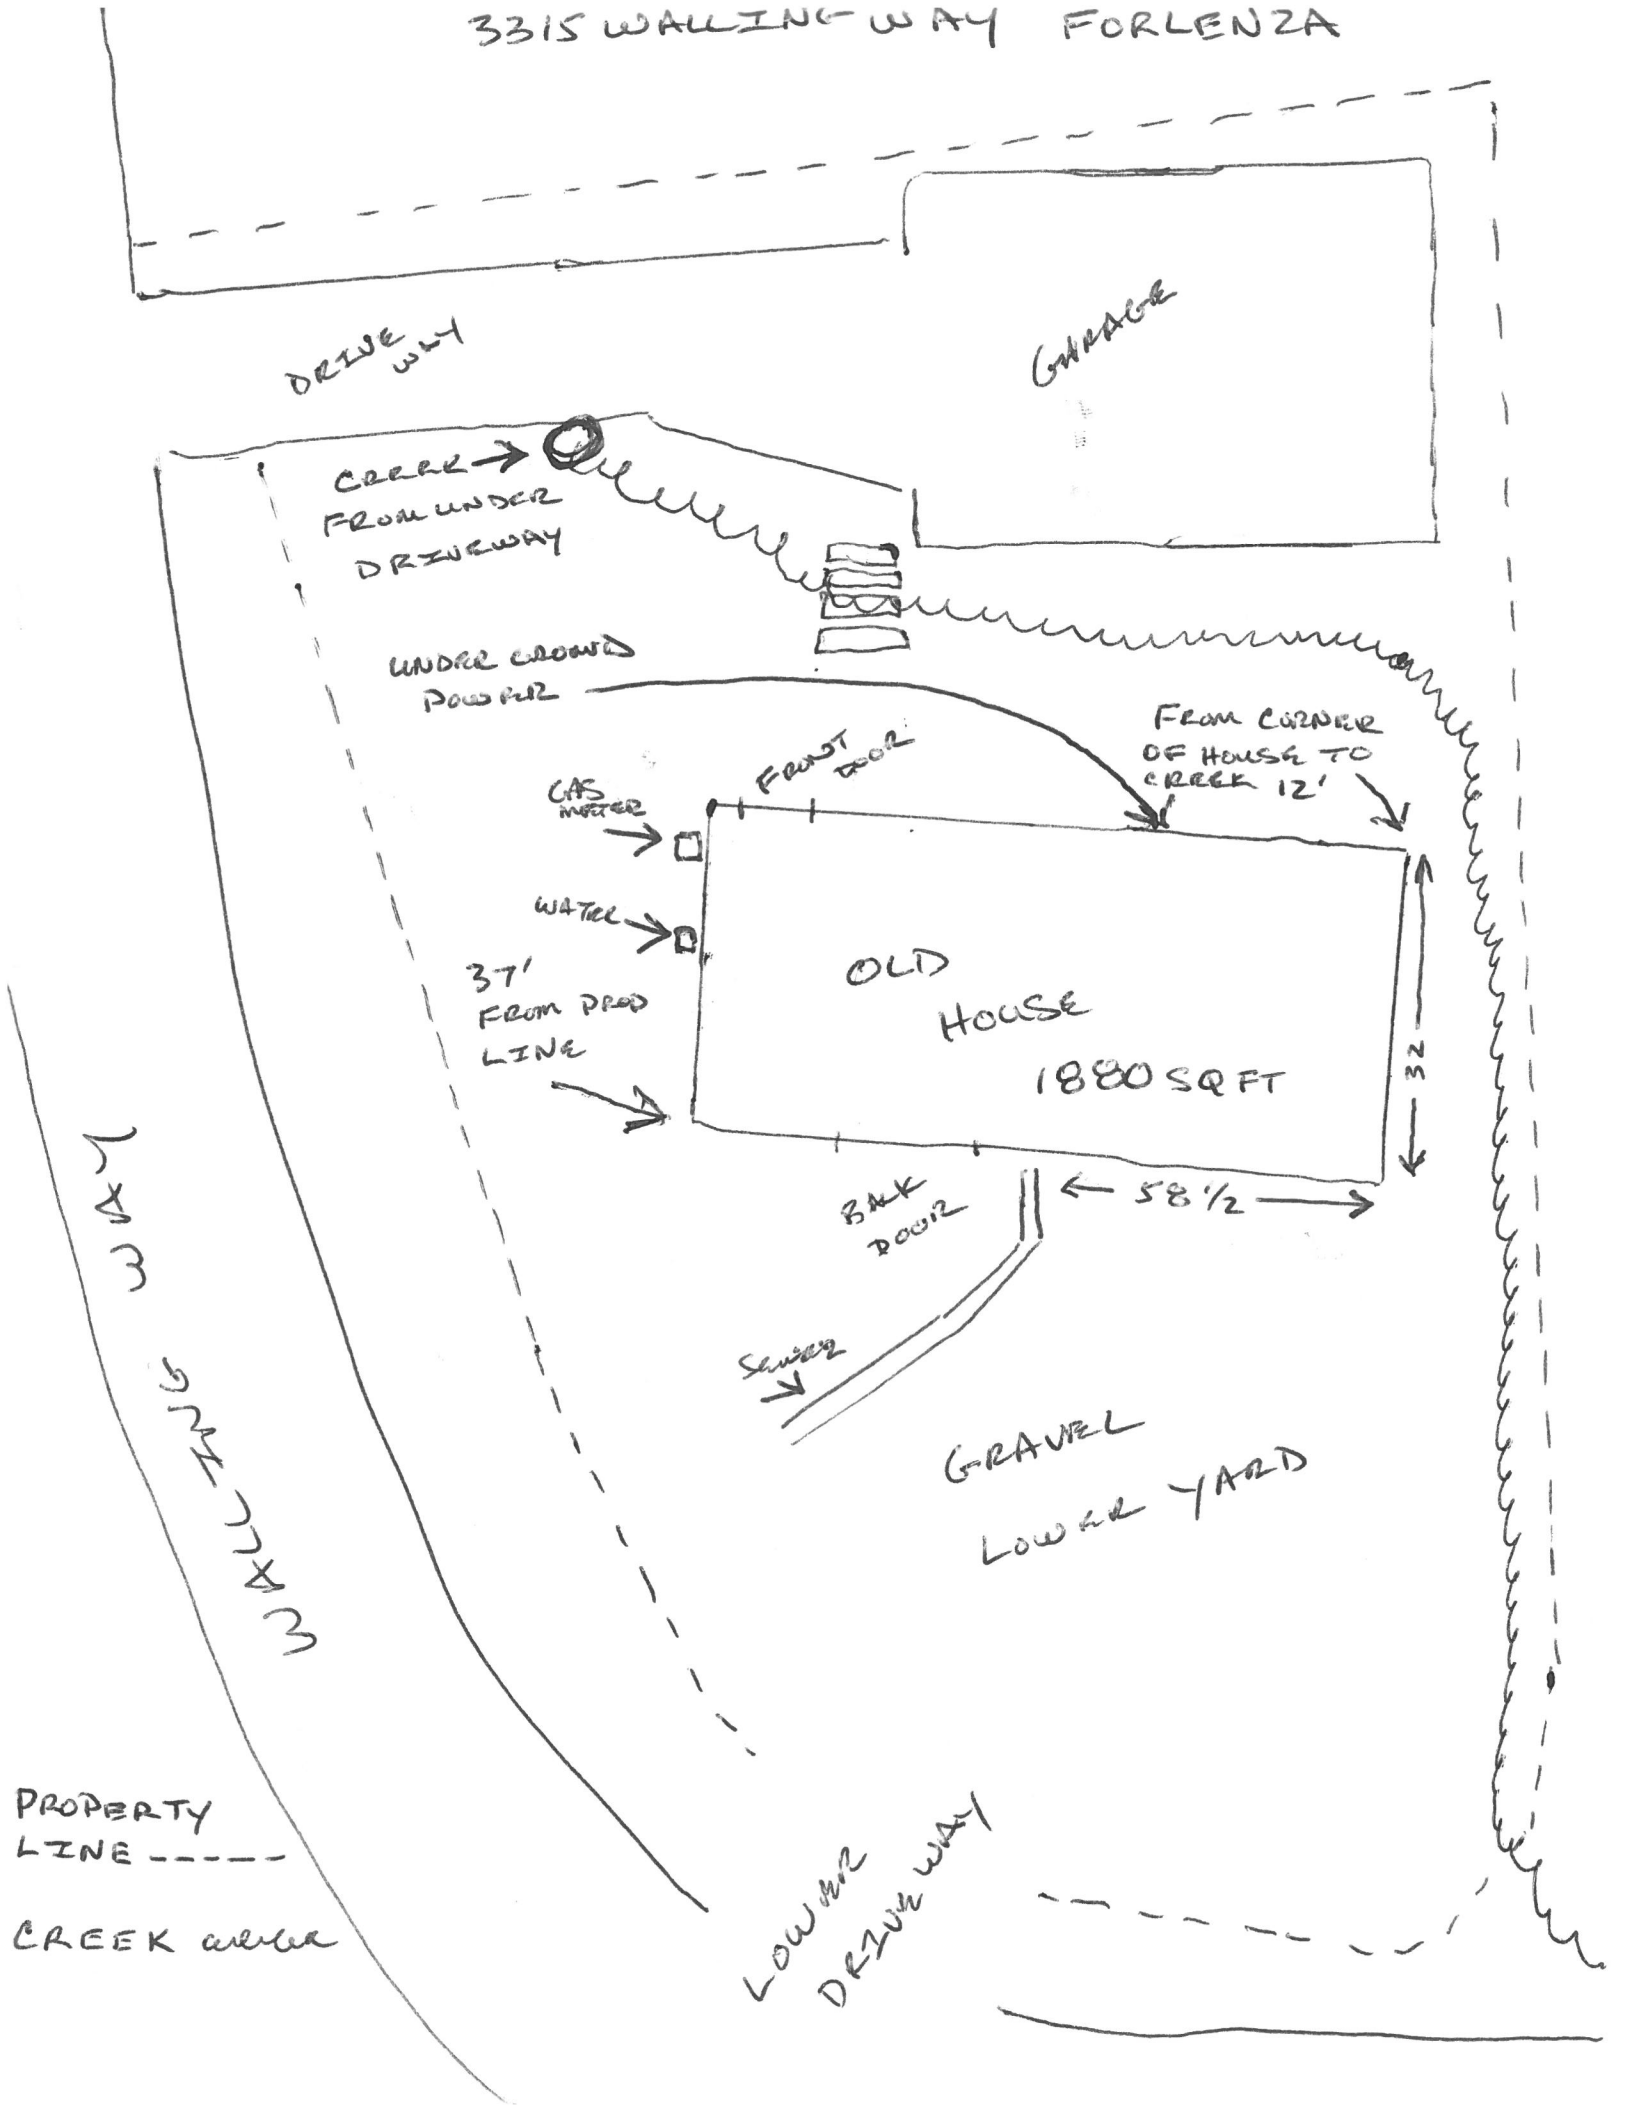 3315 WALLING WAY FORLENZA
DRIVE
WAY
GARAGE
CREEK
FROM UNDER
DRIVEWAY
UNDER GROUND
POWER
FROM CORNER
OF HOUSE TO
CREEK 12'
FRONT
DOOR
GAS
METER
WATER
37'
FROM PROP
LINE
OLD
HOUSE
1880 SQ FT
32
58 1/2
BACK
DOOR
SEWER
GRAVEL
LOWER YARD
WALLING WAY
LOWER
DRIVE WAY
PROPERTY
LINE -----
CREEK